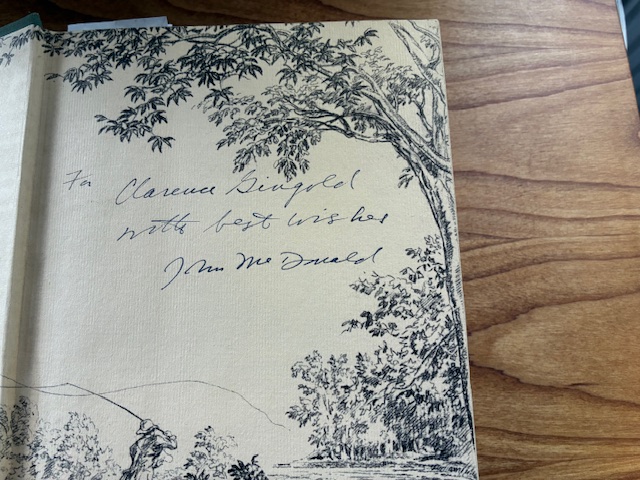 For Clarence Gingold
with best wishes
John McDonald